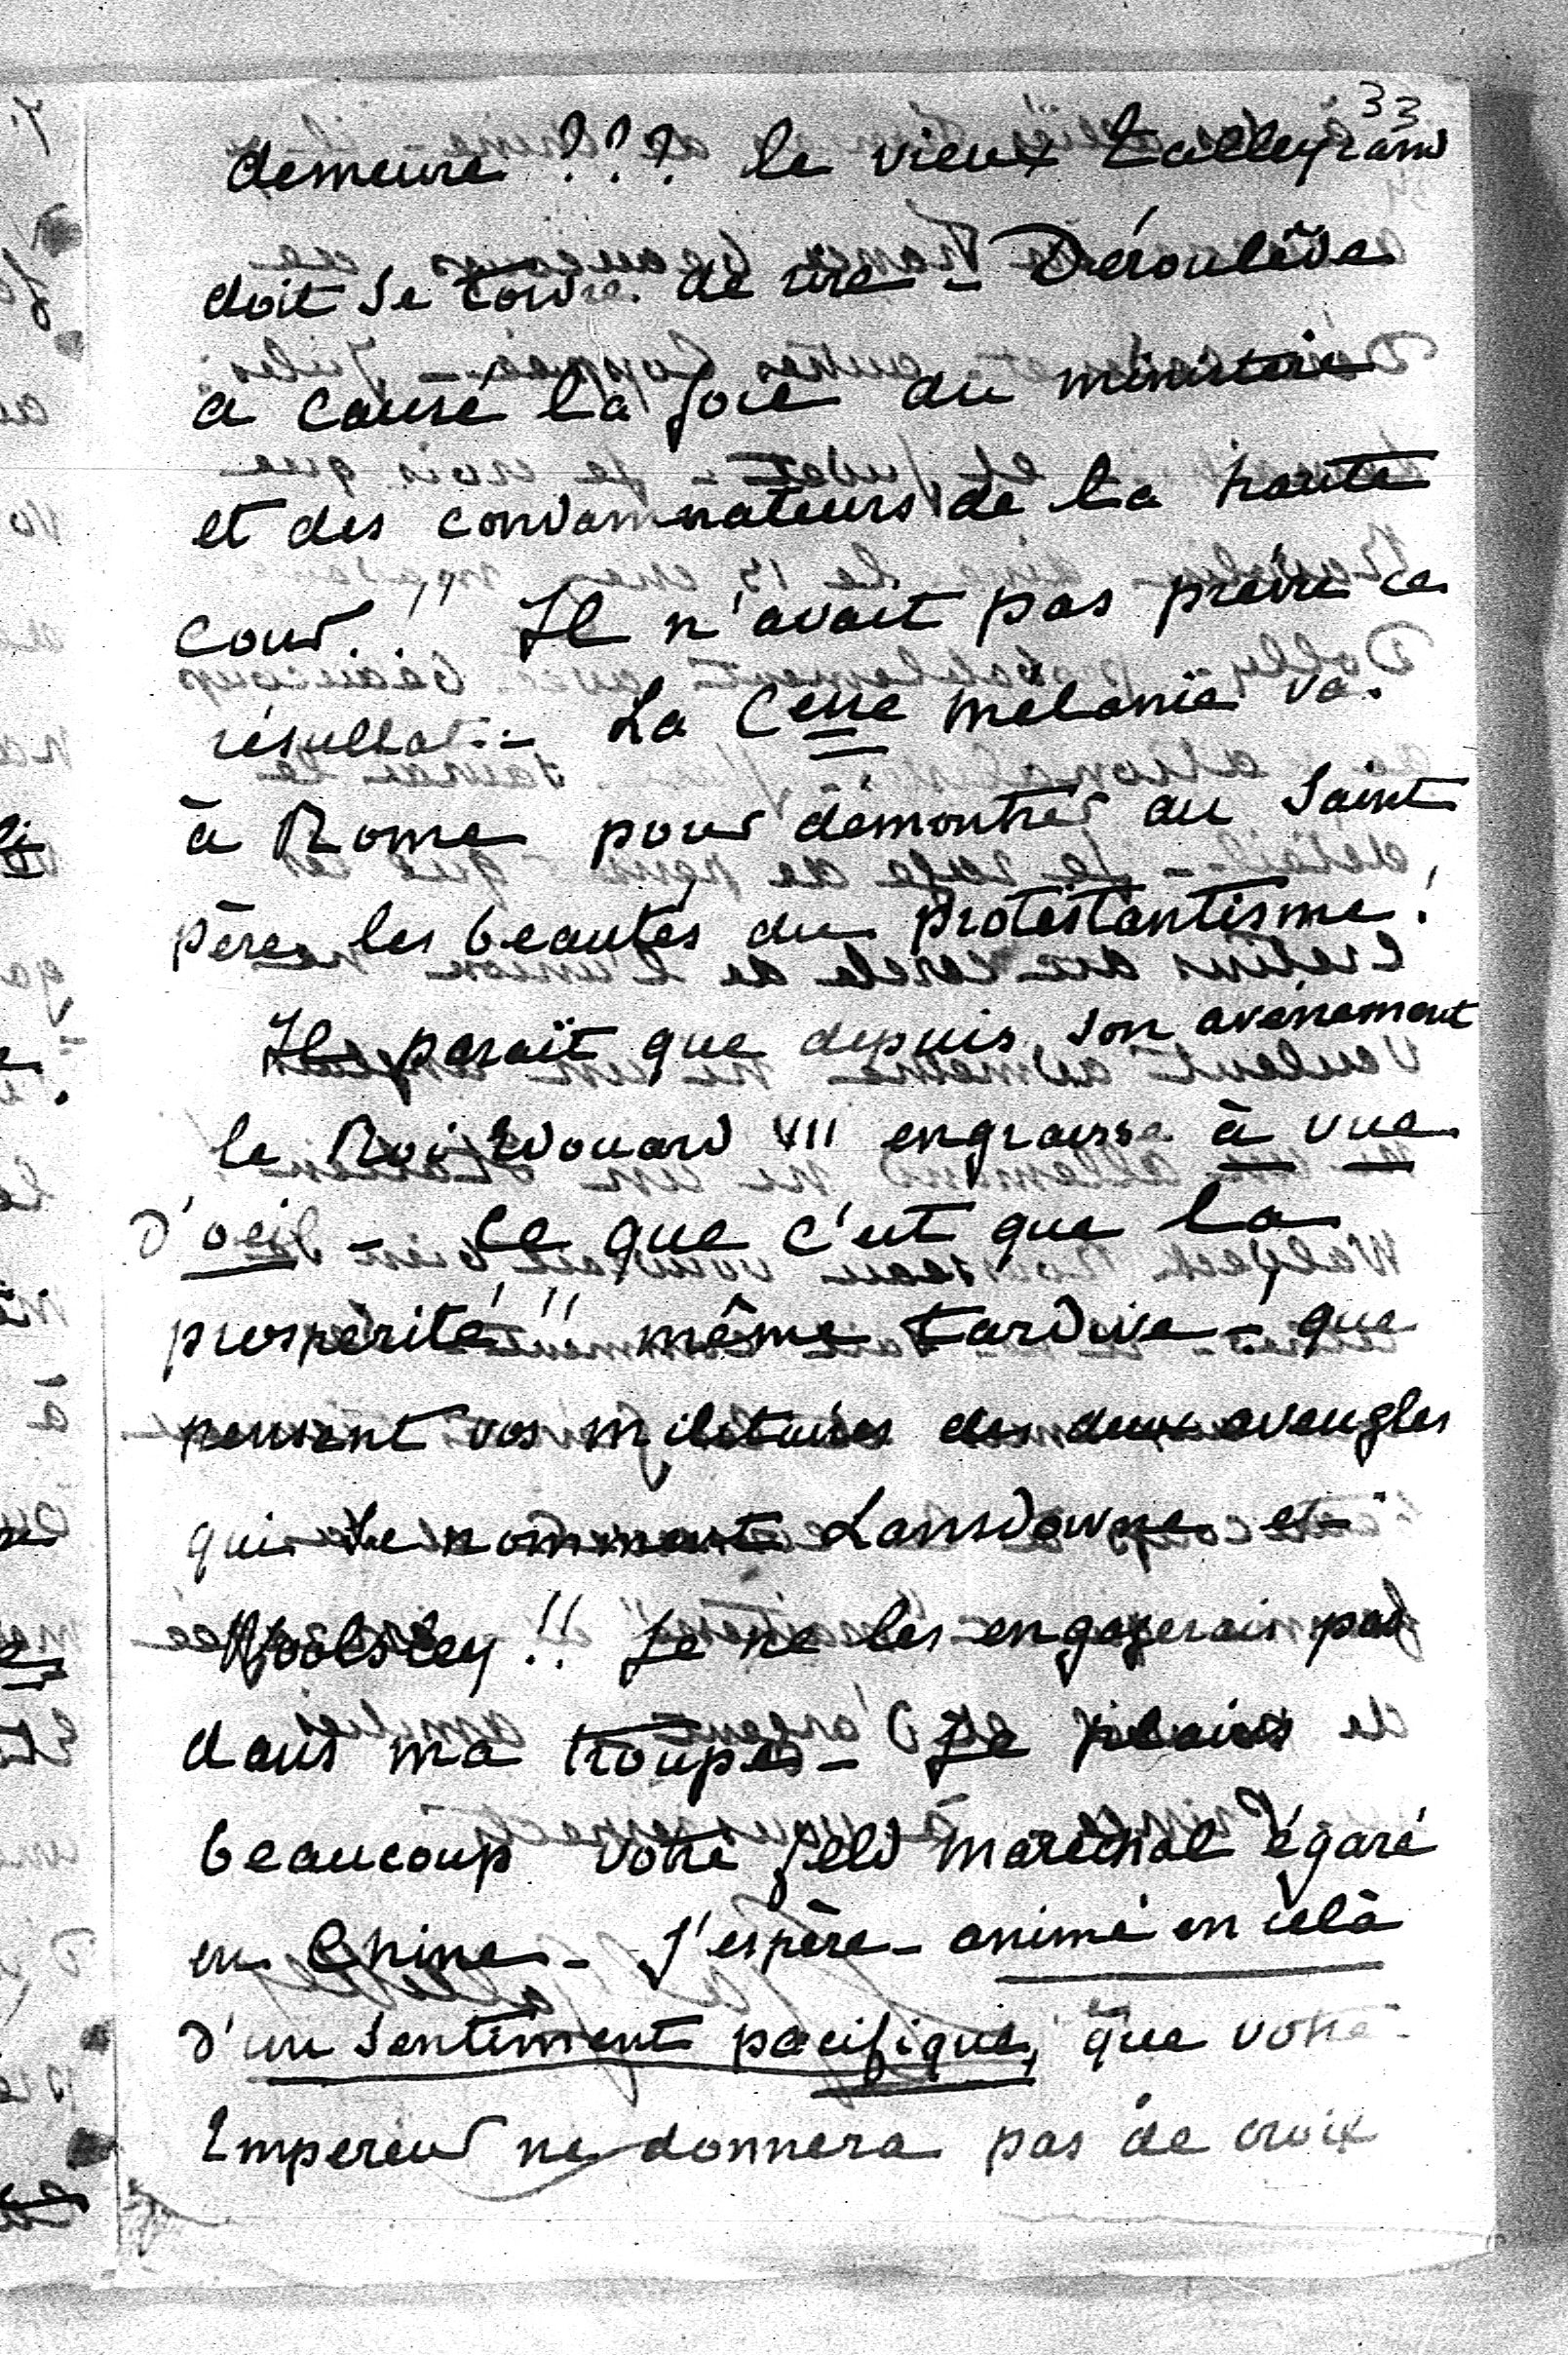 33
demeure ??? le vieux Talleyrand
doit se tordre de rire - Déroulède
a causé la joie du ministère
et des condamnateurs de la haute
cour.!! Il n'avait pas prévu ce
résultat - La Cesse mélanie va
à Rome pour démontrer au Saint
père les beautés du protestantisme!
Il paraît que depuis son avènement
le Roi Edouard VII engraisse à vue
d'oeil - Ce que c'est que la
prosperité!! même tardive - que
pensent vos militaires des deux aveugles
qui se nomment Lansdowne et
Woolsley!! Je ne les engagerais pas
dans ma troupe - Je plains
beaucoup votre feld maréchal égaré
en Chine - J'espère - animé en celà
d'un sentiment pacifique, que votre
Empereur ne donnera pas de croix